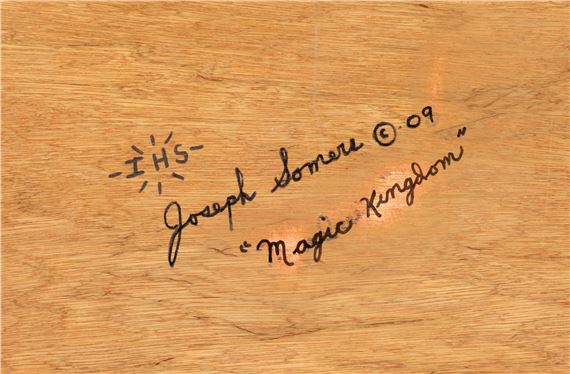 IHS
Joseph Somers © 09
"Magic Kingdom"